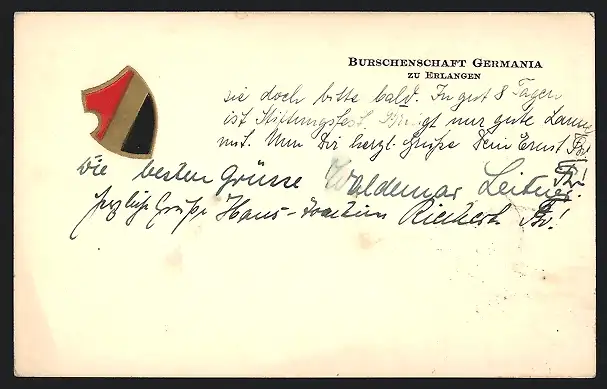 BURSCHENSCHAFT GERMANIA
ZU ERLANGEN
sie doch bitte bald. In gut 8 Tagen
ist Stiftungsfest. Bringt nur gute Laune
mit. Nun Dir herzl. Grüße Dein Ernst
Die besten Grüsse Waldemar Leitner
herzliche Grüße Hans-Joachim